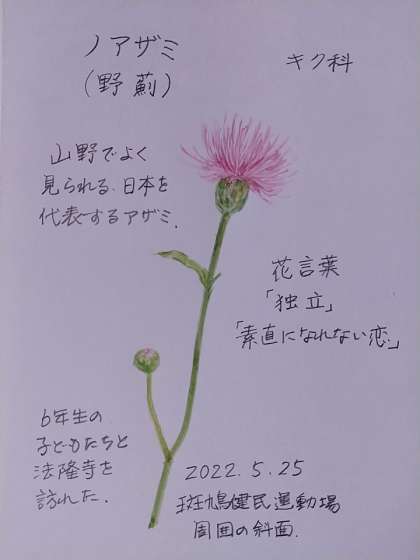 ノアザミ
(野薊)
キク科
山野でよく
見られる、日本を
代表するアザミ.
花言葉
「独立」
「素直になれない恋」
6年生の
子どもたちと
法隆寺を
訪れた.
2022.5.25
斑鳩健民運動場
周囲の斜面.